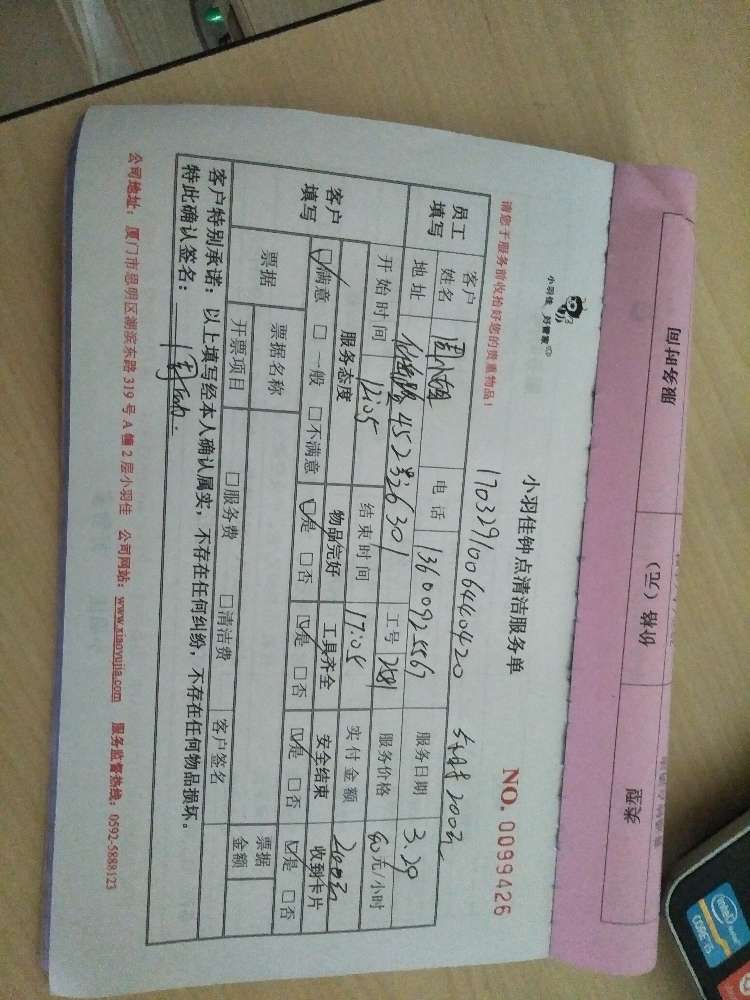 服务时间
价格（元）
类型
小羽佳 好管家
小羽佳钟点清洁服务单
请您于服务前收拾好您的贵重物品！
NO. 0099426
1703291006440420
200元
员工填写
客户姓名
周小姐
电话
13600925567
服务日期
3.29
地址
452号2b301
工号
2581
服务价格
40元/小时
开始时间
12:05
结束时间
17:05
实付金额
200元
客户填写
服务态度
物品完好
工具齐全
安全结束
收到卡片
☑满意 □一般 □不满意
☑是 □否
☑是 □否
☑是 □否
☑是 □否
票据
票据名称
客户签名
票据金额
开票项目
□服务费 □清洁费
客户特别承诺：以上填写经本人确认属实，不存在任何纠纷，不存在任何物品损坏。
特此确认签名：
公司地址：厦门市思明区湖滨东路 319 号 A 幢 2 层小羽佳 公司网站：www.xiaoyujia.com 服务监督热线：0592-5888123
intel
CORE i5